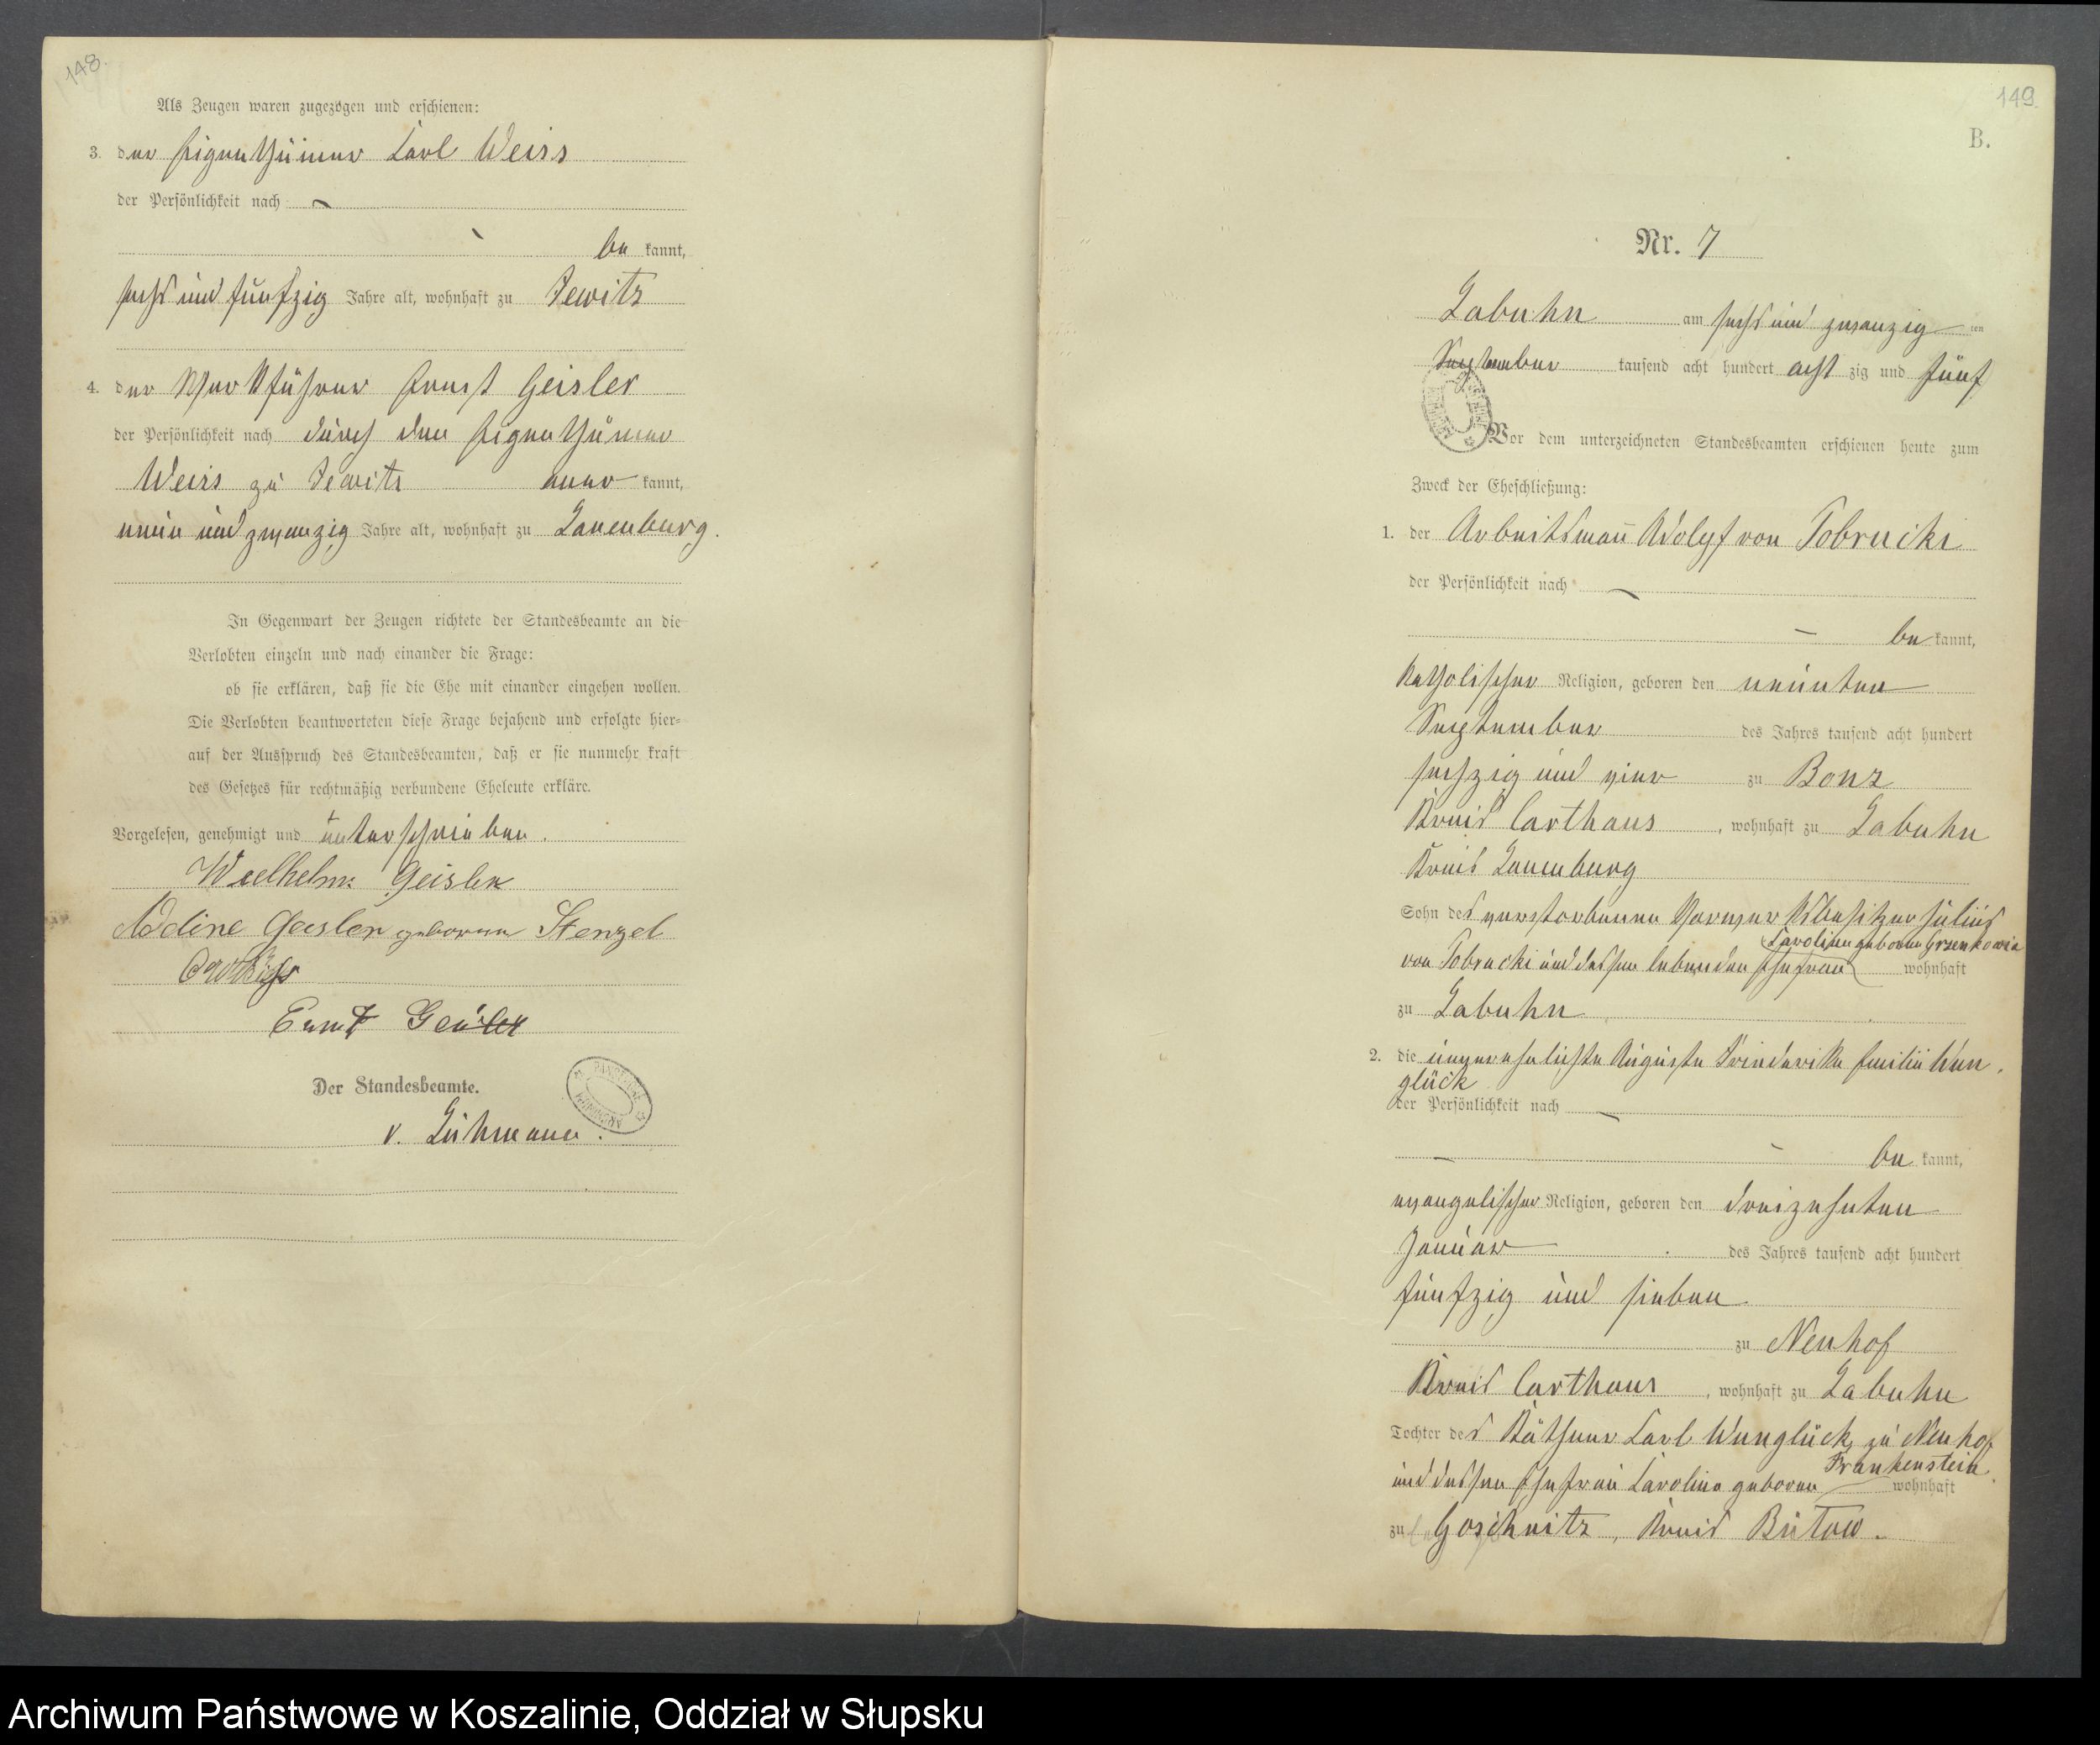 148.
Als Zeugen waren zugezogen und erschienen:
3. der Eigenthümer Carl Weiss
der Persönlichkeit nach
be kannt,
sechs und fünfzig Jahre alt, wohnhaft zu Jewitz
4. der Werkführer Ernst Geisler
der Persönlichkeit nach durch den Eigenthümer
Weiss zu Jewitz aner kannt,
neun und zwanzig Jahre alt, wohnhaft zu Lauenburg.
In Gegenwart der Zeugen richtete der Standesbeamte an die
Verlobten einzeln und nach einander die Frage:
ob sie erklären, daß sie die Ehe mit einander eingehen wollen.
Die Verlobten beantworteten diese Frage bejahend und erfolgte hier=
auf der Ausspruch des Standesbeamten, daß er sie nunmehr kraft
des Gesetzes für rechtmäßig verbundene Eheleute erkläre.
Vorgelesen, genehmigt und unterschrieben.
Wielhelm Geisler
Adeline Geisler geborene Stenzel
Ernst Geisler
Der Standesbeamte.
v. Lühmann.
149.
B.
Nr. 7
Labuhn am sechs und zwanzig ten
September tausend acht hundert acht zig und fünf
Vor dem unterzeichneten Standesbeamten erschienen heute zum
Zweck der Eheschließung:
1. der Arbeitsmann Adolf von Tobrucki
der Persönlichkeit nach
be kannt,
katholischer Religion, geboren den neunten
September des Jahres tausend acht hundert
sechzig und vier zu Bonz
Kreis Carthaus, wohnhaft zu Labuhn
Kreis Lauenburg
Sohn des verstorbenen Vorwerksbesitzer Julius
Caroline geborene Grzenkowia
von Tobrucki und dessen lebenden Ehefrau wohnhaft
zu Labuhn
2. die unverehelichte Auguste Friederike Emilie Wun
glück
der Persönlichkeit nach
be kannt,
evangelischer Religion, geboren den dreizehnten
Januar des Jahres tausend acht hundert
fünfzig und sieben
zu Neuhof
Kreis Carthaus, wohnhaft zu Labuhn
Tochter des Käthner Carl Wunglück zu Neuhof
Frankenstein
und dessen Ehefrau Caroline geborene wohnhaft
zu Goschnitz, Kreis Bütow.
Archiwum Państwowe w Koszalinie, Oddział w Słupsku